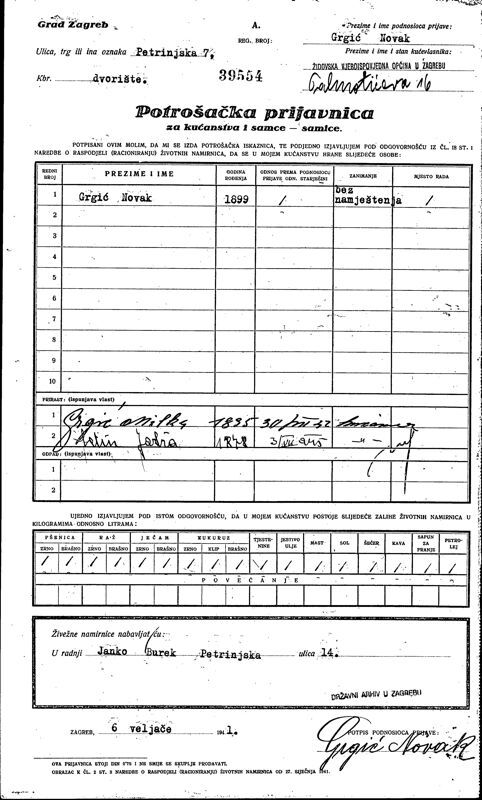 Grad Zagreb
A.
Prezime i ime podnosioca prijave:
Ulica, trg ili ina oznaka Petrinjska 7,
REG. BROJ:
Grgić Novak
Prezime i ime i stan kućevlasnika:
Kbr. dvorište.
39554
ŽIDOVSKA VJEROISPOVJEDNA OPĆINA U ZAGREBU
16
Potrošačka prijavnica
za kućanstva i samce — samice.
POTPISANI OVIM MOLIM, DA MI SE IZDA POTROŠAČKA ISKAZNICA, TE PODJEDNO IZJAVLJUJEM POD ODGOVORNOŠĆU IZ ČL. 18 ST. 1
NAREDBE O RASPODJELI (RACIONIRANJU) ŽIVOTNIH NAMIRNICA, DA SE U MOJEM KUĆANSTVU HRANE SLIJEDEĆE OSOBE:
REDNI BROJ PREZIME I IME GODINA ROĐENJA ODNOS PREMA PODNOSIOCU PRIJAVE ODN. STARJEŠINI ZANIMANJE MJESTO RADA
1 Grgić Novak 1899 / bez namještenja /
2
3
4
5
6
7
8
9
10
PRIRAST: (ispunjava vlast)
1 Grgić Milka 1895
2 1878
OTPAD: (ispunjava vlast)
1
2
UJEDNO IZJAVLJUJEM POD ISTOM ODGOVORNOŠĆU, DA U MOJEM KUĆANSTVU POSTOJE SLIJEDEĆE ZALIHE ŽIVOTNIH NAMIRNICA U
KILOGRAMIMA ODNOSNO LITRAMA:
PŠENICA RAŽ JEČAM KUKURUZ TJESTENINE JESTIVO ULJE MAST SOL ŠEĆER KAVA SAPUN ZA PRANJE PETROLEJ
ZRNO BRAŠNO ZRNO BRAŠNO ZRNO BRAŠNO ZRNO KLIP BRAŠNO
/ / / / / / / / / / / / / / / / /
POVEĆANJE
Živežne namirnice nabavljat ću:
U radnji Janko Burek Petrinjska ulica 14.
DRŽAVNI ARHIV U ZAGREBU
ZAGREB, 6 veljače 1941.
POTPIS PODNOSIOCA PRIJAVE:
Grgić Novak
OVA PRIJAVNICA STOJI DIN 0'75 I NE SMIJE SE SKUPLJE PRODAVATI.
OBRAZAC K ČL. 2 ST. 3 NAREDBE O RASPODJELI (RACIONIRANJU) ŽIVOTNIH NAMIRNICA OD 27. SIJEČNJA 1941.